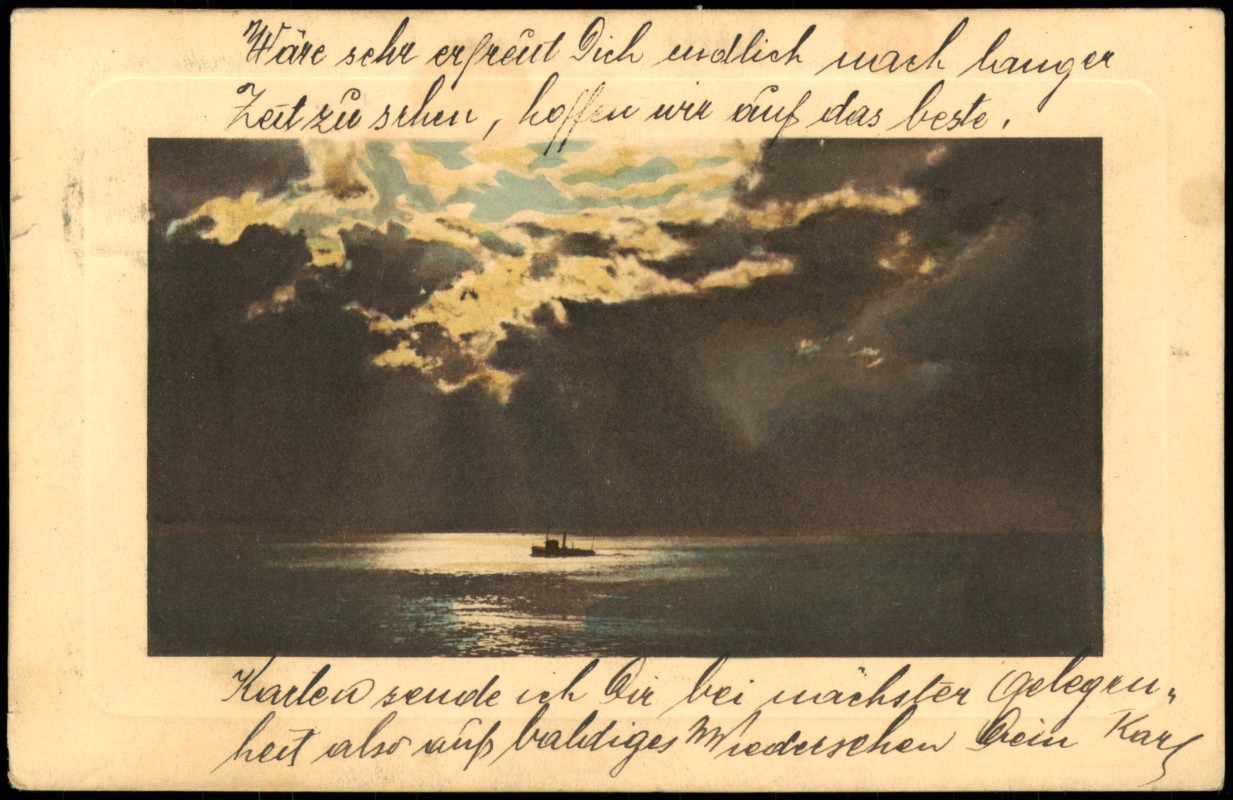 Wäre sehr erfreut Dich endlich nach langer
Zeit zu sehen, hoffen wir auf das beste.
Karten sende ich Dir bei nächster Gelegen„
heit also auf baldiges Wiedersehen Dein Karl